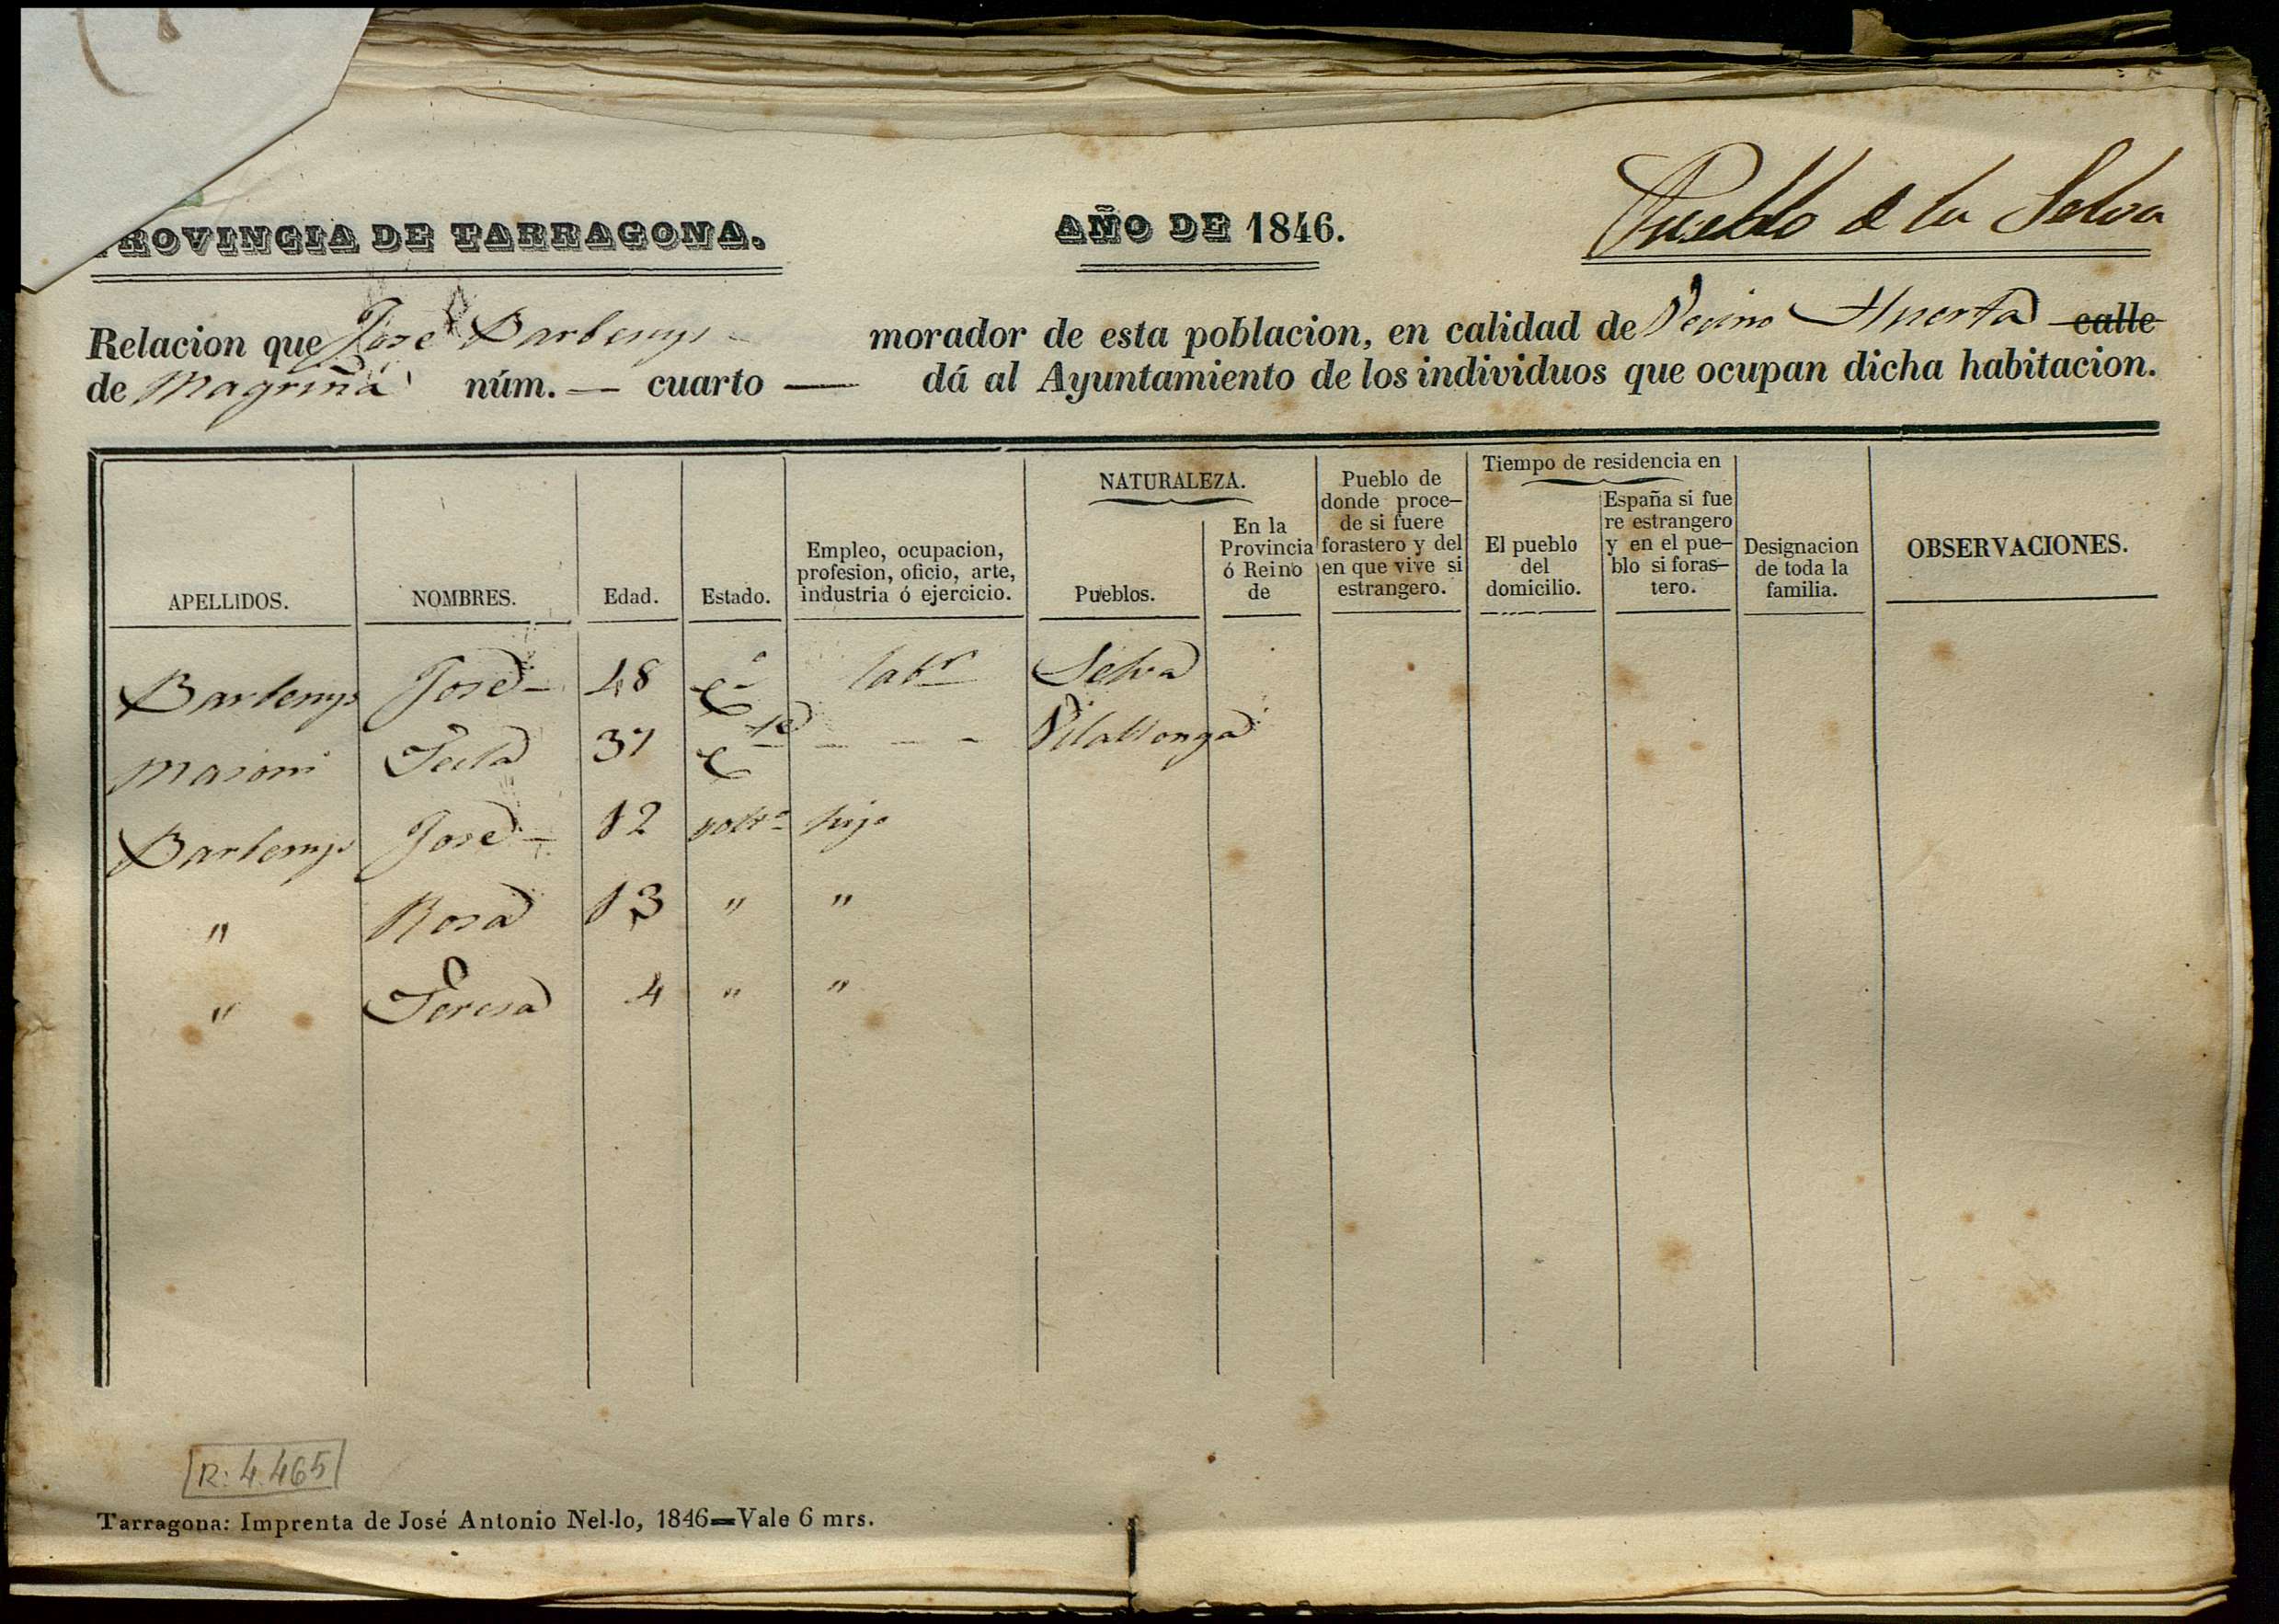 PROVINCIA DE TARRAGONA. AÑO DE 1846. Pueblo de la Selva
Relacion que José Barbenys morador de esta poblacion, en calidad de Vecino Huerta calle
de Magriñá núm. — cuarto — dá al Ayuntamiento de los individuos que ocupan dicha habitacion.
APELLIDOS. NOMBRES. Edad. Estado. Empleo, ocupacion, profesion, oficio, arte, industria ó ejercicio. NATURALEZA. Pueblos. En la Provincia ó Reino de Pueblo de donde proce- de si fuere forastero y del en que vive si estrangero. Tiempo de residencia en El pueblo del domicilio. España si fue re estrangero y en el pue- blo si foras- tero. Designacion de toda la familia. OBSERVACIONES.
Barbenys José 48 Co labr Selva
Tecla 37 C Vilallonga
Barbenys José 12 solto hijo
" Rosa 13 " "
" Teresa 4 " "
R: 4.465
Tarragona: Imprenta de José Antonio Nel·lo, 1846=Vale 6 mrs.